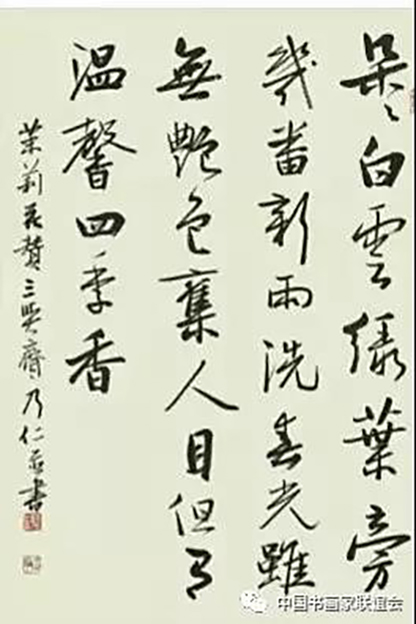 朵々白雲綠葉旁
幾番新雨洗春光雖
無艷色奪人目但有
溫馨四季香
茉莉花贊三吳齊乃仁書
中国书画家联谊会